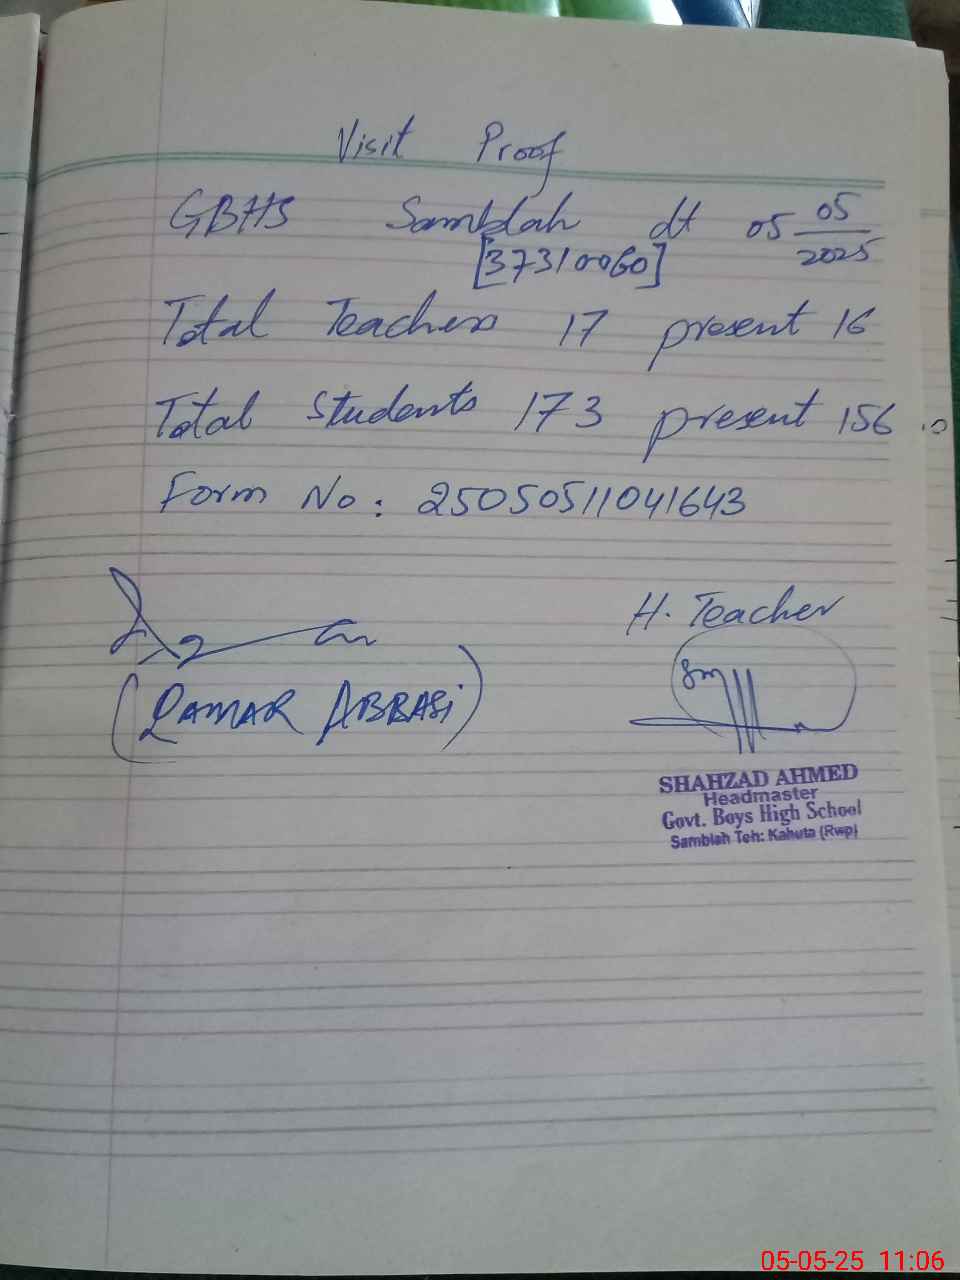 Visit Proof
GBHS Samblah dt 05 05/2025
[37310060]
Total Teachers 17 present 16
Total Students 173 present 156
Form No: 25050511041643
H. Teacher
(QAMAR ABBASi)
SHAHZAD AHMED
Headmaster
Govt. Boys High School
Samblah Teh: Kahuta (Rwp)
05-05-25 11:06